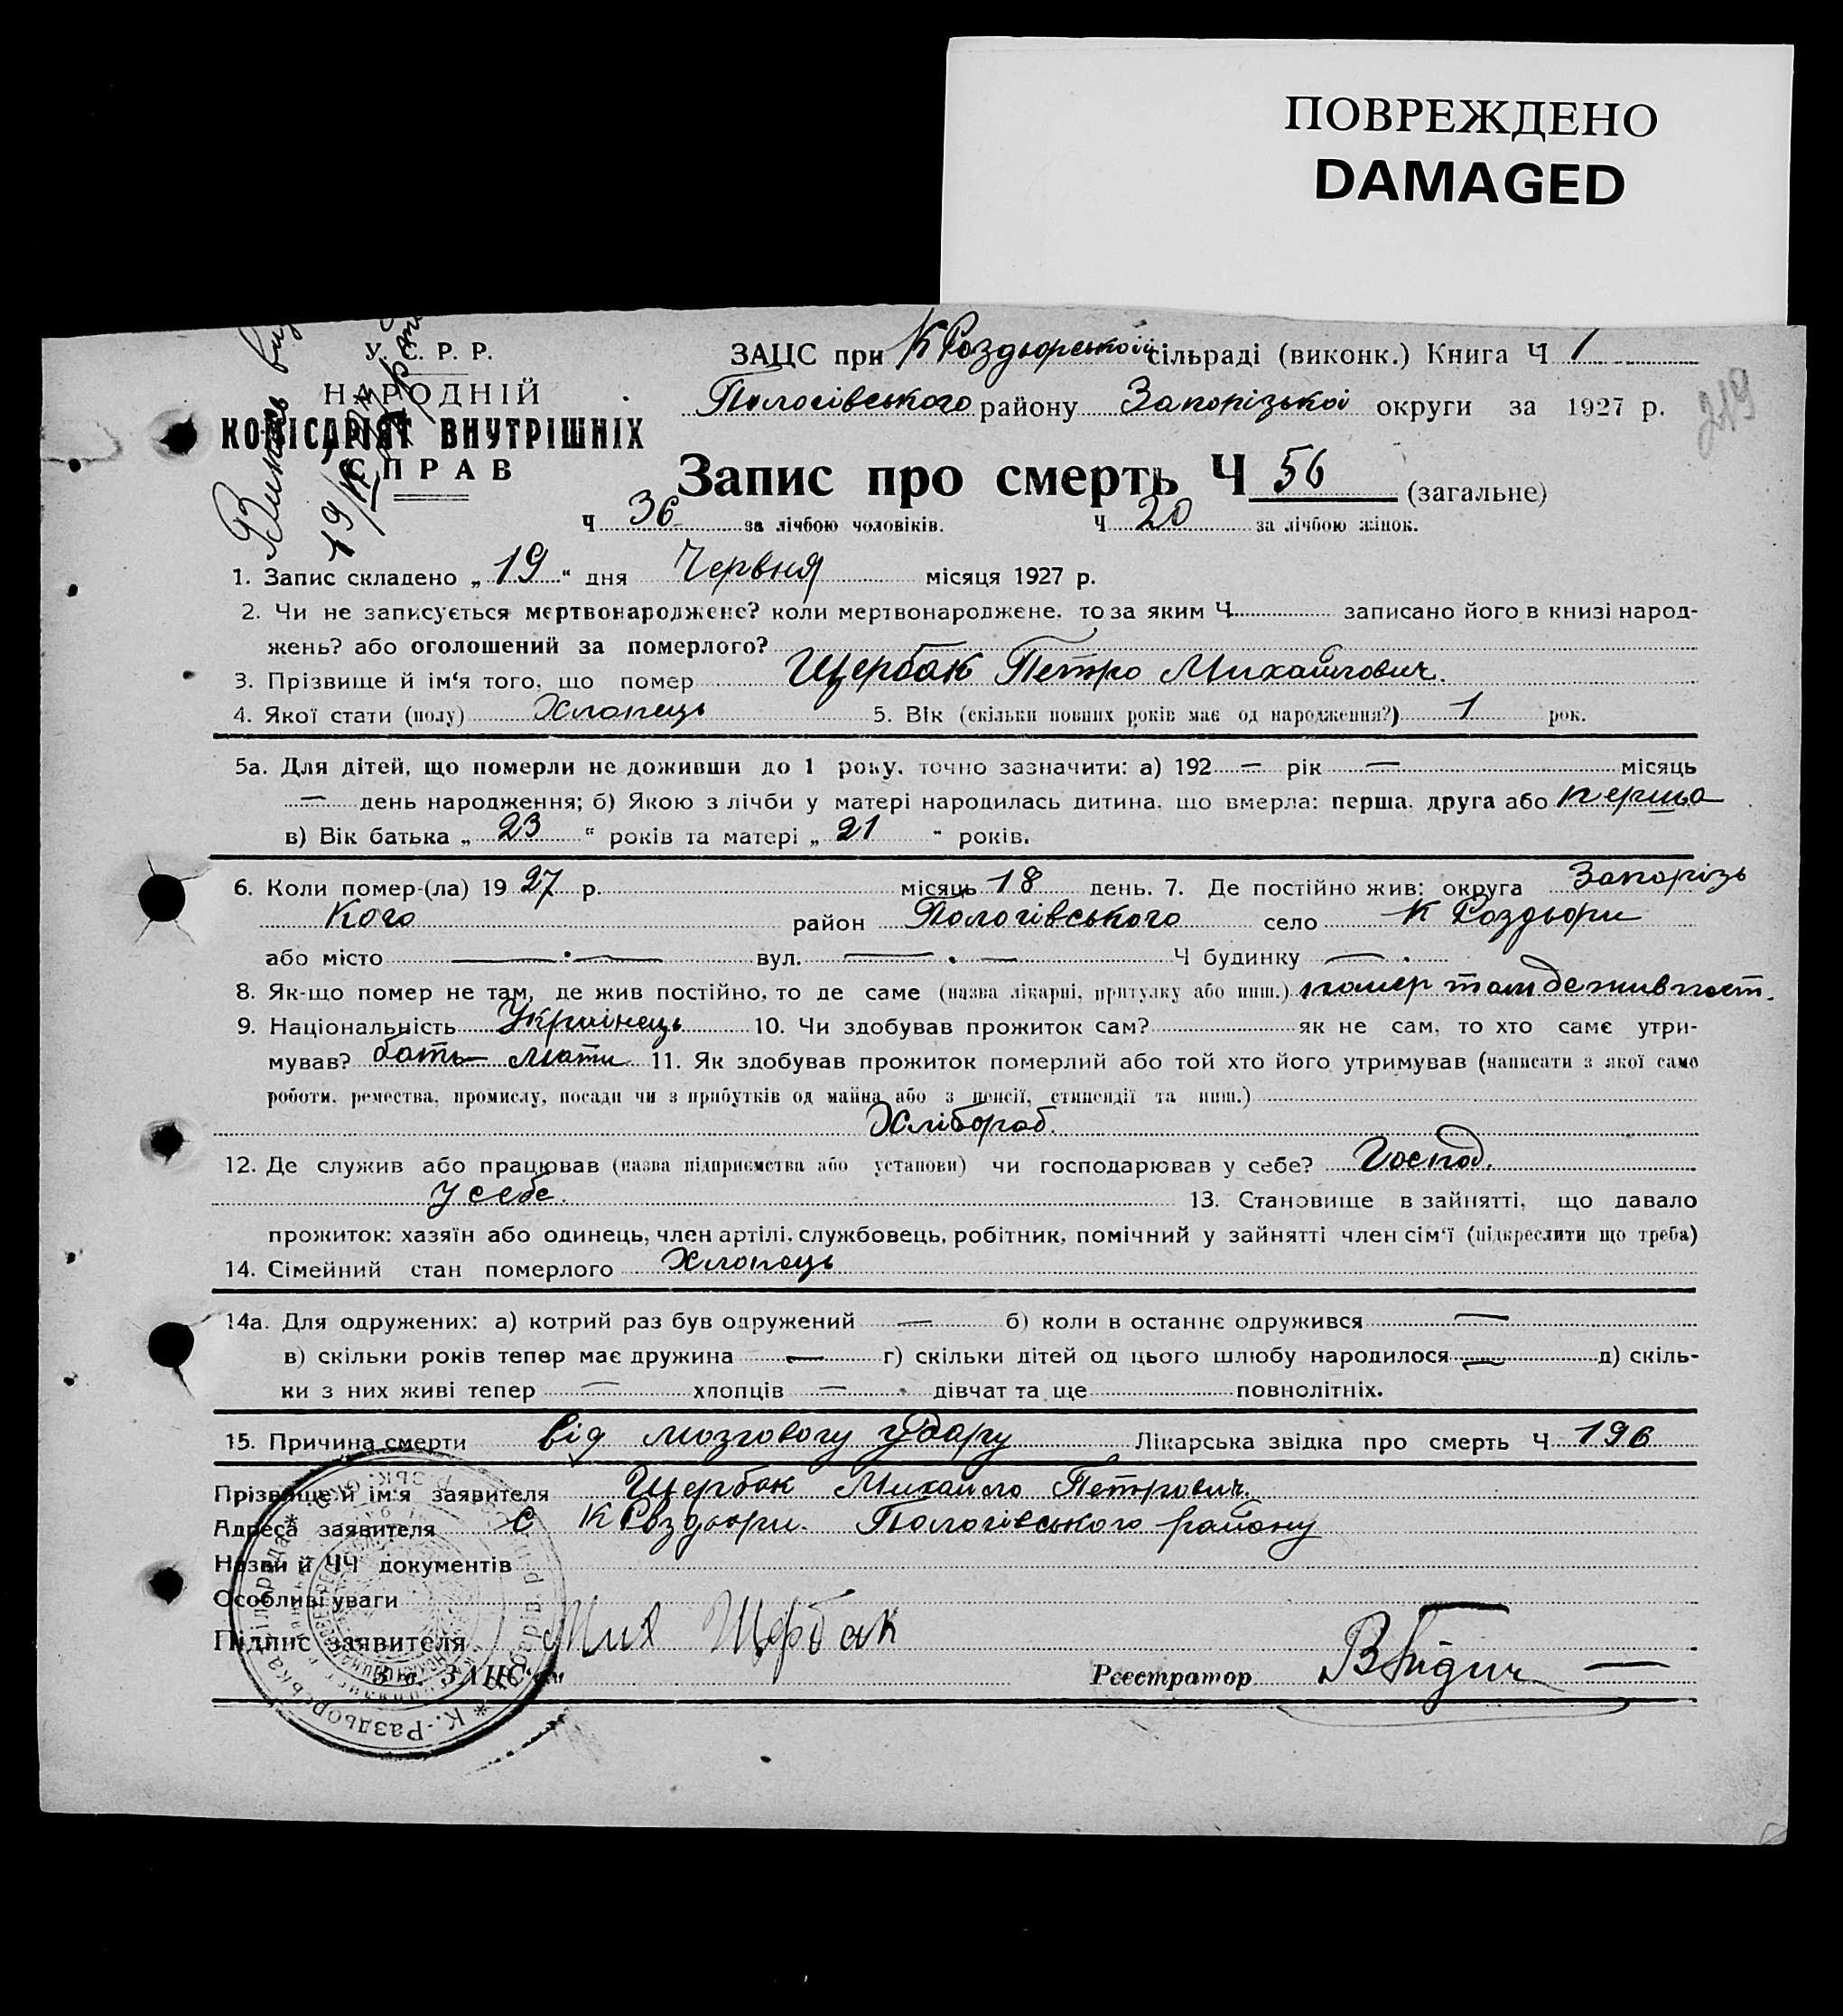 ПОВРЕЖДЕНО
DAMAGED
У. С. Р. Р.
НАРОДНІЙ
КОМІСАРІЯТ ВНУТРІШНІХ
СПРАВ
ЗАЦС при К Роздьорської сільраді (виконк.) Книга Ч 1
Пологівського району Запорізької округи за 1927 р.
219
Запис про смерть Ч 56 (загальне)
Ч 36 за лічбою чоловіків. Ч 20 за лічбою жінок.
1. Запис складено „ 19 “ дня Червня місяця 1927 р.
2. Чи не записується мертвонароджене? коли мертвонароджене. то за яким Ч записано його в книзі народ-
жень? або оголошений за померлого?
3. Прізвище й ім‘я того, що помер Щербак Петро Михайлович.
4. Якої стати (полу) Хлопець 5. Вік (скільки повних років має од народження?) 1 рок.
5а. Для дітей, що померли не доживши до 1 року. точно зазначити: а) 192 — рік — місяць
— день народження; б) Якою з лічби у матері народилась дитина, що вмерла: перша, друга або перша
в) Вік батька „ 23 “ років та матері „ 21 “ років.
6. Коли помер-(ла) 19 27 р. місяць 18 день. 7. Де постійно жив: округа Запорізь
кого район Пологівського село К Роздьори
або місто — . — вул. — . — Ч будинку — .
8. Як-що помер не там, де жив постійно, то де саме (назва лікарні, притулку або инш.) помер там де жив пост.
9. Національність Українець 10. Чи здобував прожиток сам? як не сам, то хто саме утри-
мував? бать мати 11. Як здобував прожиток померлий або той хто його утримував (написати з якої само
роботи, ремества, промислу, посади чи з прибутків од майна або з пенсії, стипендії та инш.)
Хлібороб.
12. Де служив або працював (назва підприємства або установи) чи господарював у себе? Господ.
у себе. 13. Становище в зайнятті, що давало
прожиток: хазяїн або одинець, член артілі, службовець, робітник, помічний у зайнятті член сім‘ї (підкреслити що треба)
14. Сімейний стан померлого Хлопець
14а. Для одружених: а) котрий раз був одружений — б) коли в останнє одружився —
в) скільки років тепер має дружина — г) скільки дітей од цього шлюбу народилося — д) скіль-
ки з них живі тепер — хлопців — дівчат та ще повнолітніх.
15. Причина смерти від мозговогу удару Лікарська звідка про смерть Ч 196
Прізвище й ім'я заявителя Щербак Михайло Петрович.
Адреса заявителя С К Роздьори. Пологівського району
Назви й ЧЧ документів
Особливі уваги
Підпис заявителя Мих Щербак
Зав. ЗАЦС'ом
Реєстратор
К.-Раздьорська сільрада